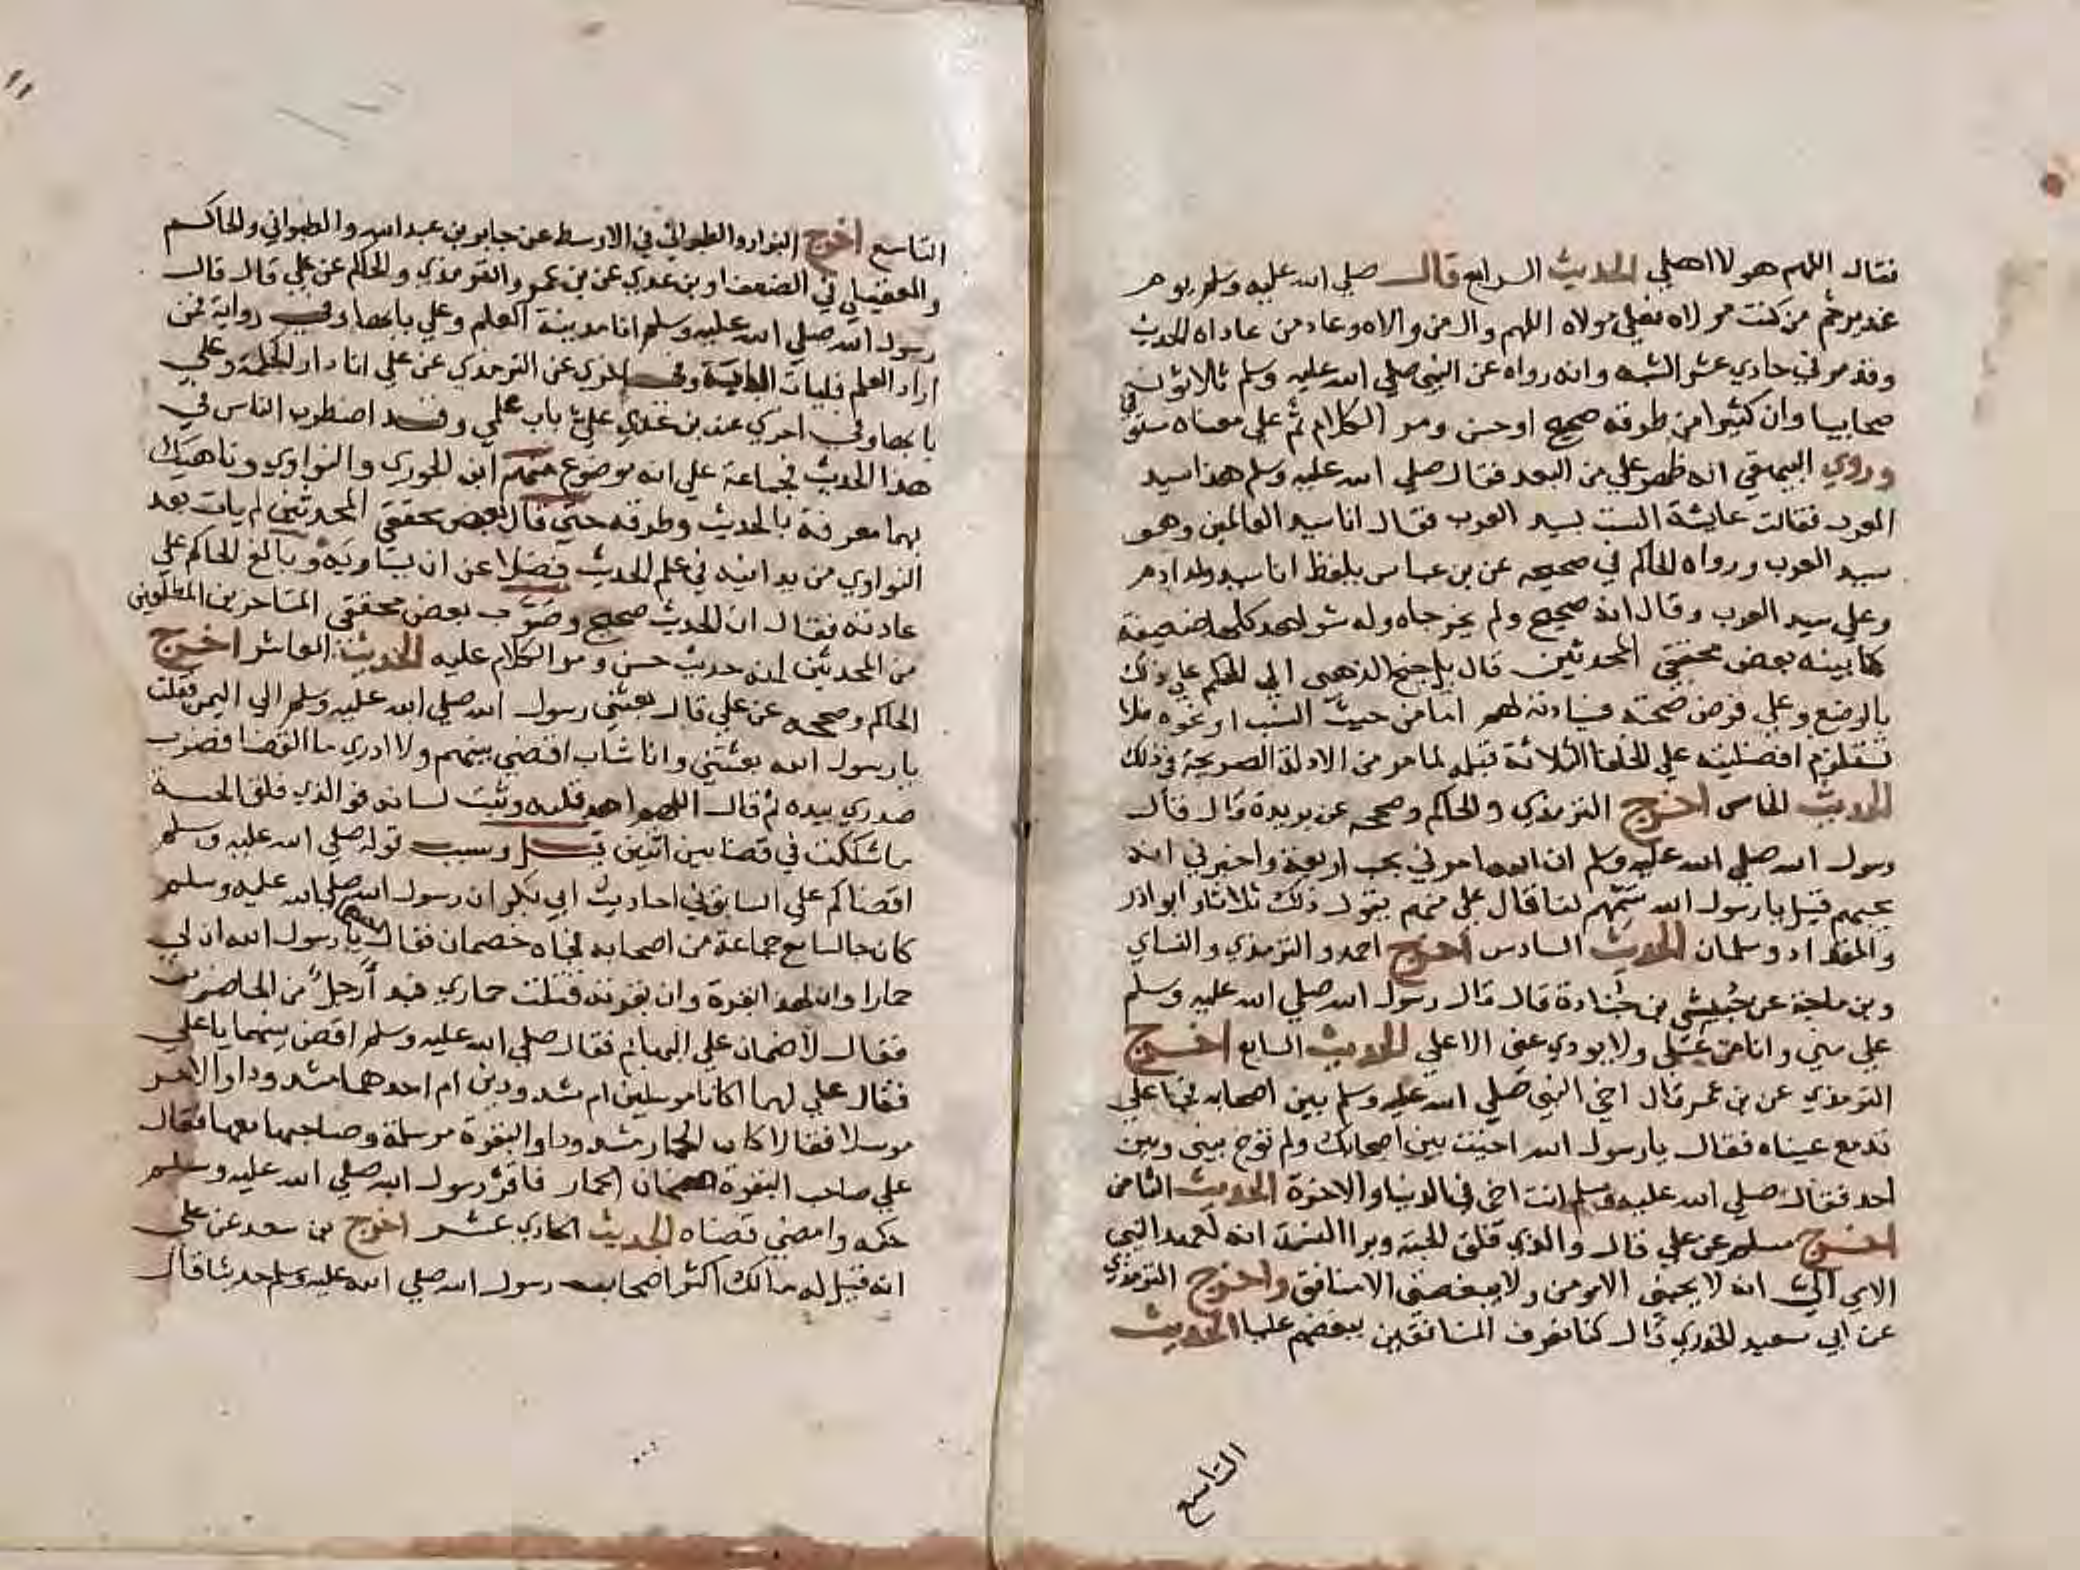 فقال اللهم هولا اهلي الحديث الرابع قال صلي الله عليه وسلم يوم
غدير خم من كنت مولاه فعلي مولاه اللهم وال من والاه وعاد من عاداه الحديث
وقد مر في حادي عشر الشبه وانه رواه عن النبي صلي الله عليه وسلم ثلاثون
صحابيا وان كثيرا من طرقه صحيح او حسن ومر الكلام ثم علي معناه مستوفي
وروي البيهقي انه ظهر علي من البعد فقال صلي الله عليه وسلم هذا سيد
العرب فقالت عايشة الست بسيد العرب فقال انا سيد العالمين وهو
سيد العرب ورواه الحاكم في صحيحه عن بن عباس بلفظ انا سيد ولد ادم
وعلي سيد العرب وقال انه صحيح ولم يخرجاه وله شواهد كلها ضعيفة
كما بينه بعض محققي المحدثين قال بل جنح الذهبي الي الحكم علي ذلك
بالوضع وعلي فرض صحته فسيادته لهم اما من حيث النسب او نحوه فلا
تستلزم افضليته علي الخلفا الثلاثة قبله لما مر من الادلة الصريحة في ذلك
الحديث الخامس اخرج الترمذي والحاكم وصححه عن بريدة قال قال
رسول الله صلي الله عليه وسلم ان الله امرني بحب اربعة واخبرني انه
يحبهم قيل يا رسول الله سمهم لنا قال علي منهم يقول ذلك ثلاثا وابوا ذر
والمقداد وسلمان الحديث السادس اخرج احمد والترمذي والنساي
وبن ماجة عن حبشي بن جنادة قال قال رسول الله صلي الله عليه وسلم
علي مني وانا من علي ولا يودي عني الا علي الحديث السابع اخرج
الترمذي عن بن عمر قال اخي النبي صلي الله عليه وسلم بين اصحابه فجا علي
تدمع عيناه فقال يا رسول الله اخيت بين اصحابك ولم تواخ بيني وبين
احد فقال صلي الله عليه وسلم انت اخي في الدنيا والاخرة الحديث الثامن
اخرج مسلم عن علي قال والذي فلق الحبة وبرا النسمة انه لعهد النبي
الامي الي انه لا يحبني الا مومن ولا يبغضني الا منافق واخرج الترمذي
عن ابي سعيد الخدري قال كنا نعرف المنافقين ببغضهم عليا الحديث
التاسع
١١
التاسع اخرج البزار والطبراني في الاوسط عن جابر بن عبد الله والطبراني والحاكم
والعقيلي في الضعفا وبن عدي عن بن عمر والترمذي والحاكم عن علي قال قال
رسول الله صلي الله عليه وسلم انا مدينة العلم وعلي بابها وفي رواية فمن
اراد العلم فليات الباب وفي اخري عن الترمذي عن علي انا دار الحكمة وعلي
بابها وفي اخري عند بن عدي علي باب علمي وقد اضطرب الناس في
هذا الحديث فجماعة علي انه موضوع منهم ابن الجوزي والنواوي وناهيك
بهما معرفة بالحديث وطرقه حتي قال بعض محققي المحدثين لم يات بعد
النواوي من يدانيه في علم الحديث فضلا عن ان يساويه وبالغ الحاكم علي
عادته فقال ان الحديث صحيح وصوب بعض محققي المتاخرين المطلعين
من المحدثين انه حديث حسن ومر الكلام عليه الحديث العاشر اخرج
الحاكم وصححه عن علي قال بعثني رسول الله صلي الله عليه وسلم الي اليمن فقلت
يا رسول الله بعثتني وانا شاب اقضي بينهم ولا ادري ما القضا فضرب
صدري بيده ثم قال اللهم اهد قلبه وثبت لسانه فو الذي فلق الحبة
ما شككت في قضا بين اثنين قيل وسبب قوله صلي الله عليه وسلم
اقضاكم علي السابق في احاديث ابي بكر ان رسول الله صلي الله عليه وسلم
كان جالسا مع جماعة من اصحابه فجاه خصمان فقال يا رسول الله ان لي
حمارا وان لهذا بقرة وان بقرته قتلت حماري فبدا رجل من الحاضرين
فقال لا ضمان علي البهايم فقال صلي الله عليه وسلم اقض بينهما يا علي
فقال علي لهما اكانا مرسلين ام مشدودين ام احدهما مشدودا والاخر
مرسلا فقالا كان الحمار مشدودا والبقرة مرسلة وصاحبها معها فقال
علي صاحب البقرة ضمان الحمار فاقر رسول الله صلي الله عليه وسلم
حكمه وامضي قضاه الحديث الحادي عشر اخرج بن سعد عن علي
انه قيل له مالك اكثر اصحاب رسول الله صلي الله عليه وسلم حديثا قال